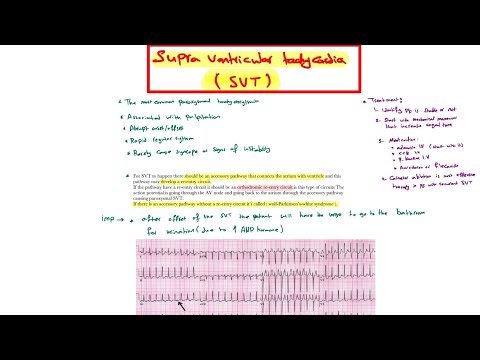 Supra ventricular tachycardia
( SVT )
The most common paroxysmal tachyarrhythmia
Associated with palpitation
Abrupt onset/offset
Rapid regular rhythm
Rarely cause syncope or signs of instability
For SVT to happen there should be an accessory pathway that connects the atrium with ventricle and this
pathway may develop a re-entry circuit.
If the pathway have a re-entry circuit it should be an orthodromic re-entry circuit is this type of circuits The
action potential is going through the AV node and going back to the atrium through the accessory pathway
causing paroxysmal SVT.
If there is an accessory pathway without a re-entry circuit it's called ( wolf-Parkinson's-white syndrome ).
imp → after offset of the SVT the patient will have the urge to go to the bathroom
for urination (due to ↑ ANP hormone)
Treatment:
1. identify pt is stable or not
2. Start with mechanical maneuver
that increase vagal tone
3. Medication:
adenosine IV (start with it)
CCB IV
β-blocker IV
or flecainide
4. Catheter ablation is most effective
therapy in pt with recurrent SVT